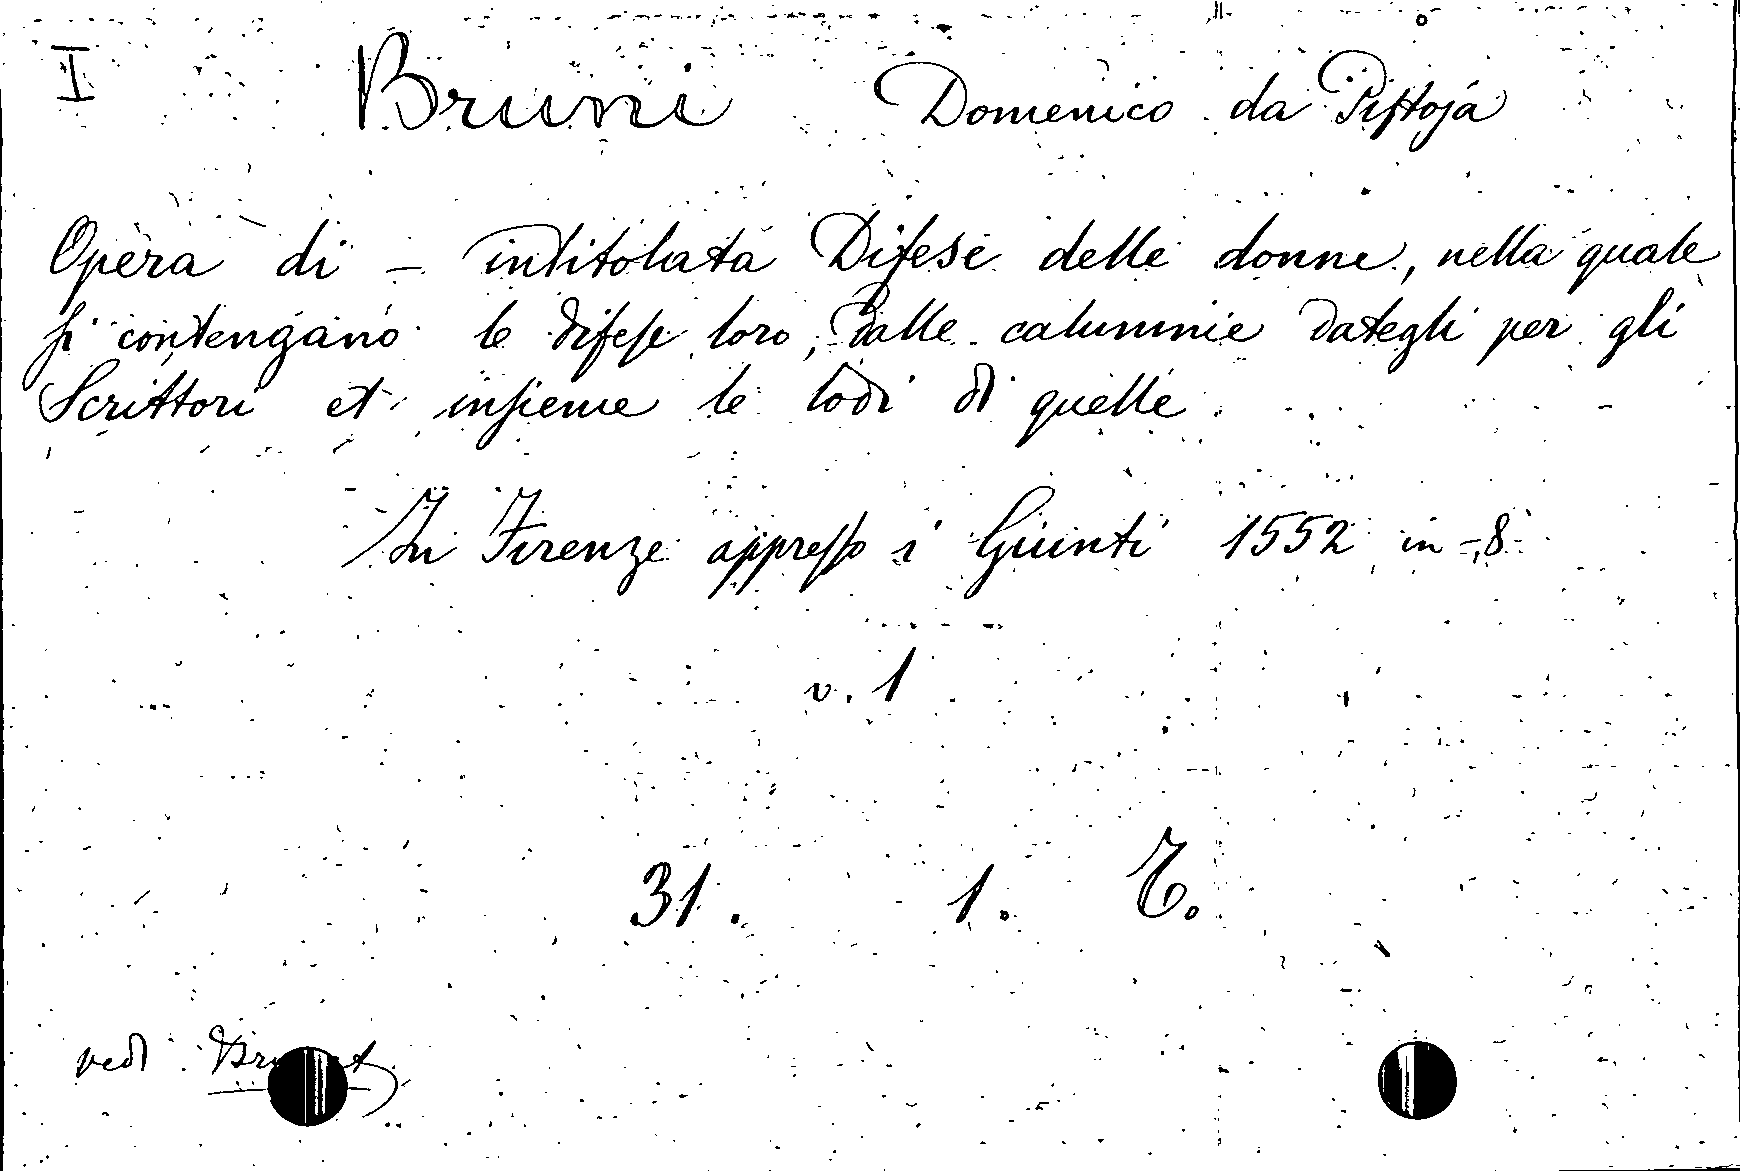 I Bruni Domenico da Piſtoja
Opera di – intitolata Difese delle donne, nella quale
ſi contengano le difeſe loro, dalle calumnie dategli per gli
Scrittori et inſieme le lodi di quelle.
In Firenze appreſſo i Giunti 1552 in-8
v. 1
31. 1. E.
vedi